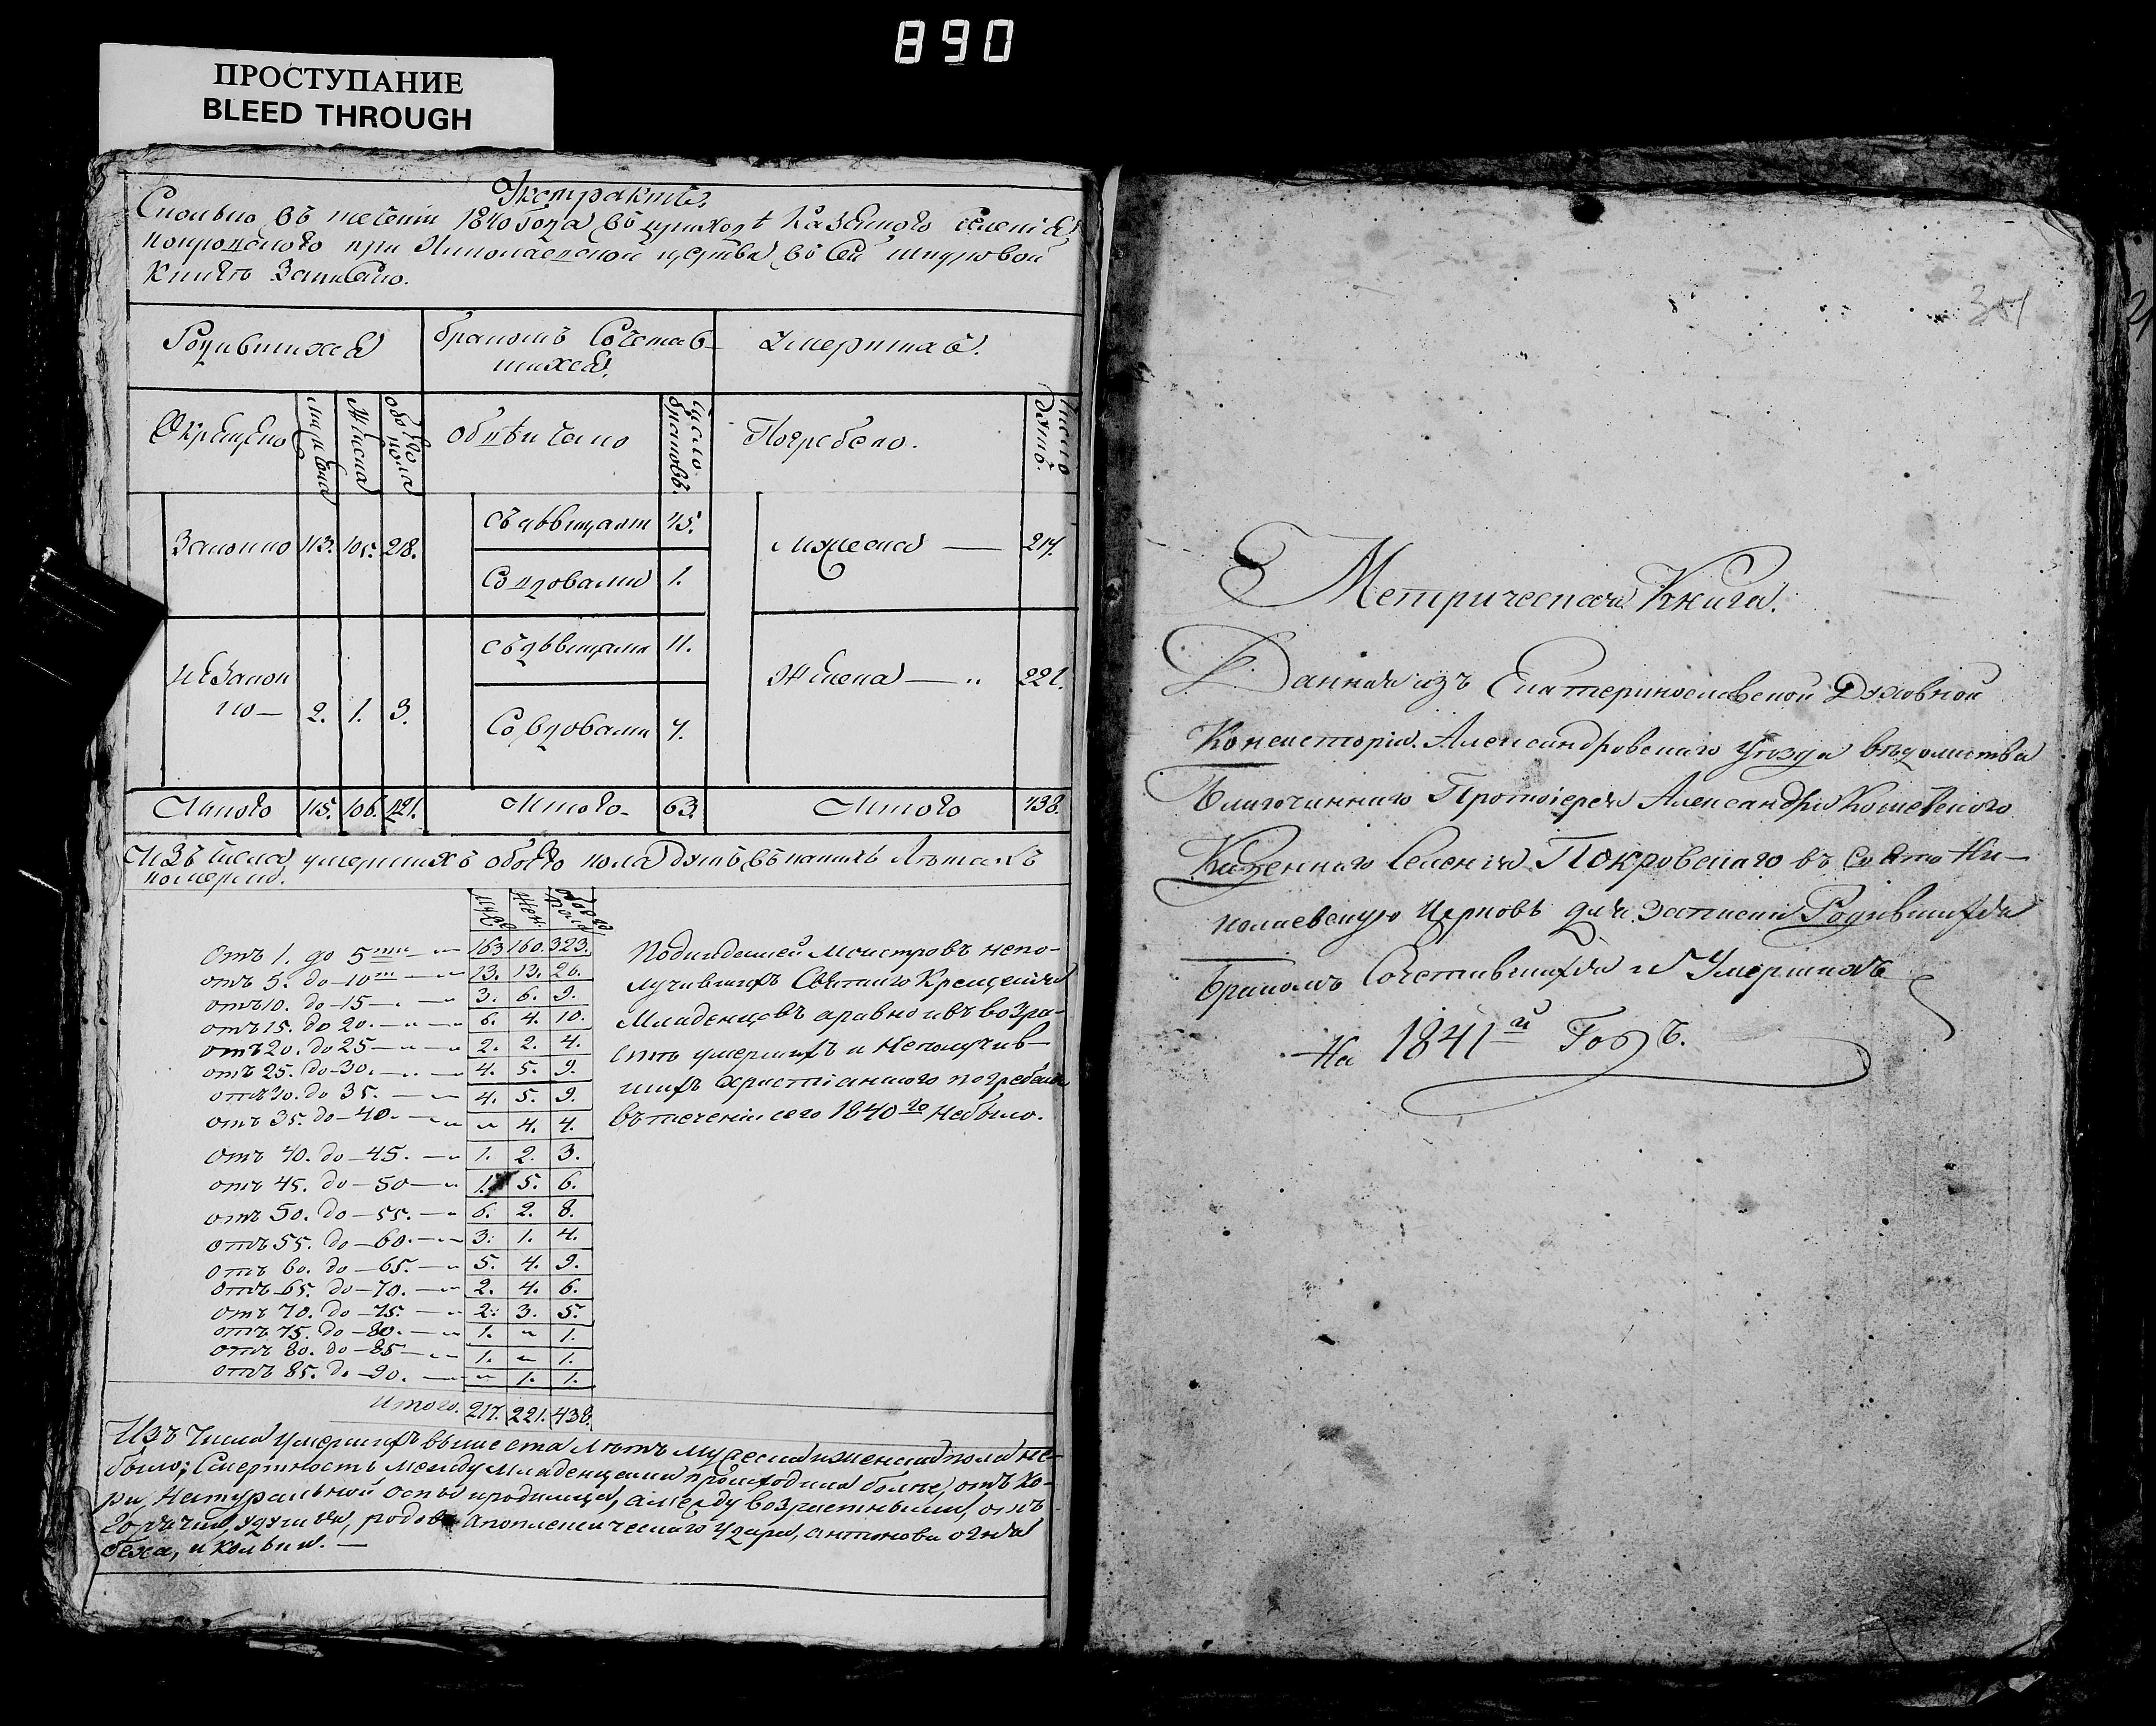 890
ПРОСТУПАНИЕ
BLEED THROUGH
Экстрактъ
Сколько въ теченіи 1840 Года въ приходѣ Казенного селенія
покровского при Николаевской церкви въ сей шнуровой
книгѣ записано.
Родившихся
бракомъ Сочетав-
шихся
Умершихъ.
Окрещено
мужеска
Женска
обоего пола
обвѣнчано
число браковъ.
Погребено.
число душъ.
Законно 113. 105. 218.
съ дѣвицами 45.
Со вдовами 1.
мужеска — 217.
незакон
но — 2. 1. 3.
съ дѣвицами 11.
Со вдовами 7.
Женска — 221.
Итого 115. 106. 221.
Итого - 63.
Итого 438.
Изъ числа умершихъ обоего пола душъ въ какихъ Лѣтахъ
померло.
Муж Жен. обоего пола
Отъ 1. до 5ти 163 160. 323.
отъ 5. до - 10ти 13. 13. 26.
отъ 10. до - 15 3. 6. 9.
отъ 15. до 20. 6. 4. 10.
отъ 20. до 25 2. 2. 4.
отъ 25. до - 30. 4. 5. 9.
отъ 30. до 35. 4. 5. 9.
отъ 35. до - 40. „ 4. 4.
Отъ 40. до - 45. 1. 2. 3.
отъ 45. до - 50 1. 5. 6.
отъ 50. до - 55. 6. 2. 8.
отъ 55. до - 60. 3. 1. 4.
отъ 60. до - 65. 5. 4. 9.
отъ 65. до - 70. 2. 4. 6.
отъ 70. до - 75. 2. 3. 5.
отъ 75. до - 80. 1. „ 1.
отъ 80. до - 85 1. „ 1.
отъ 85. до - 90. „ 1. 1.
Итого. 217. 221. 438.
Подкидышей Монстровъ непо-
лучившихъ Святаго Крещенія
Младенцовъ аравно и въ возра-
стѣ умершихъ и Неполучив-
шихъ христіанского погребенія
въ теченіи сего 1840го Небыло.
Изъ Числа умершихъ выше ста лѣтъ мужеска и женска пола не-
было; Смертность между младенцами происходила болѣе, отъ Ко-
ри, Натуральной оспы и родимца, а между возрастными, отъ
горячки, удушья, родовъ Апоплексическаго удара, антонова огня
бѣха, и кольки. —
Метрическая Книга.
Данная изъ Екатеринославской Духовной
Консисторіи. Александровскаго уѣзда вѣдомства
Благочиннаго Протоіерея Александра Кошевского
Казеннаго Селенія Покровскаго въ Свято Ни-
колаевскую Церковь для записки Родившихся
Бракомъ Сочетавшихся и Умершихъ
На 1841й Годъ.